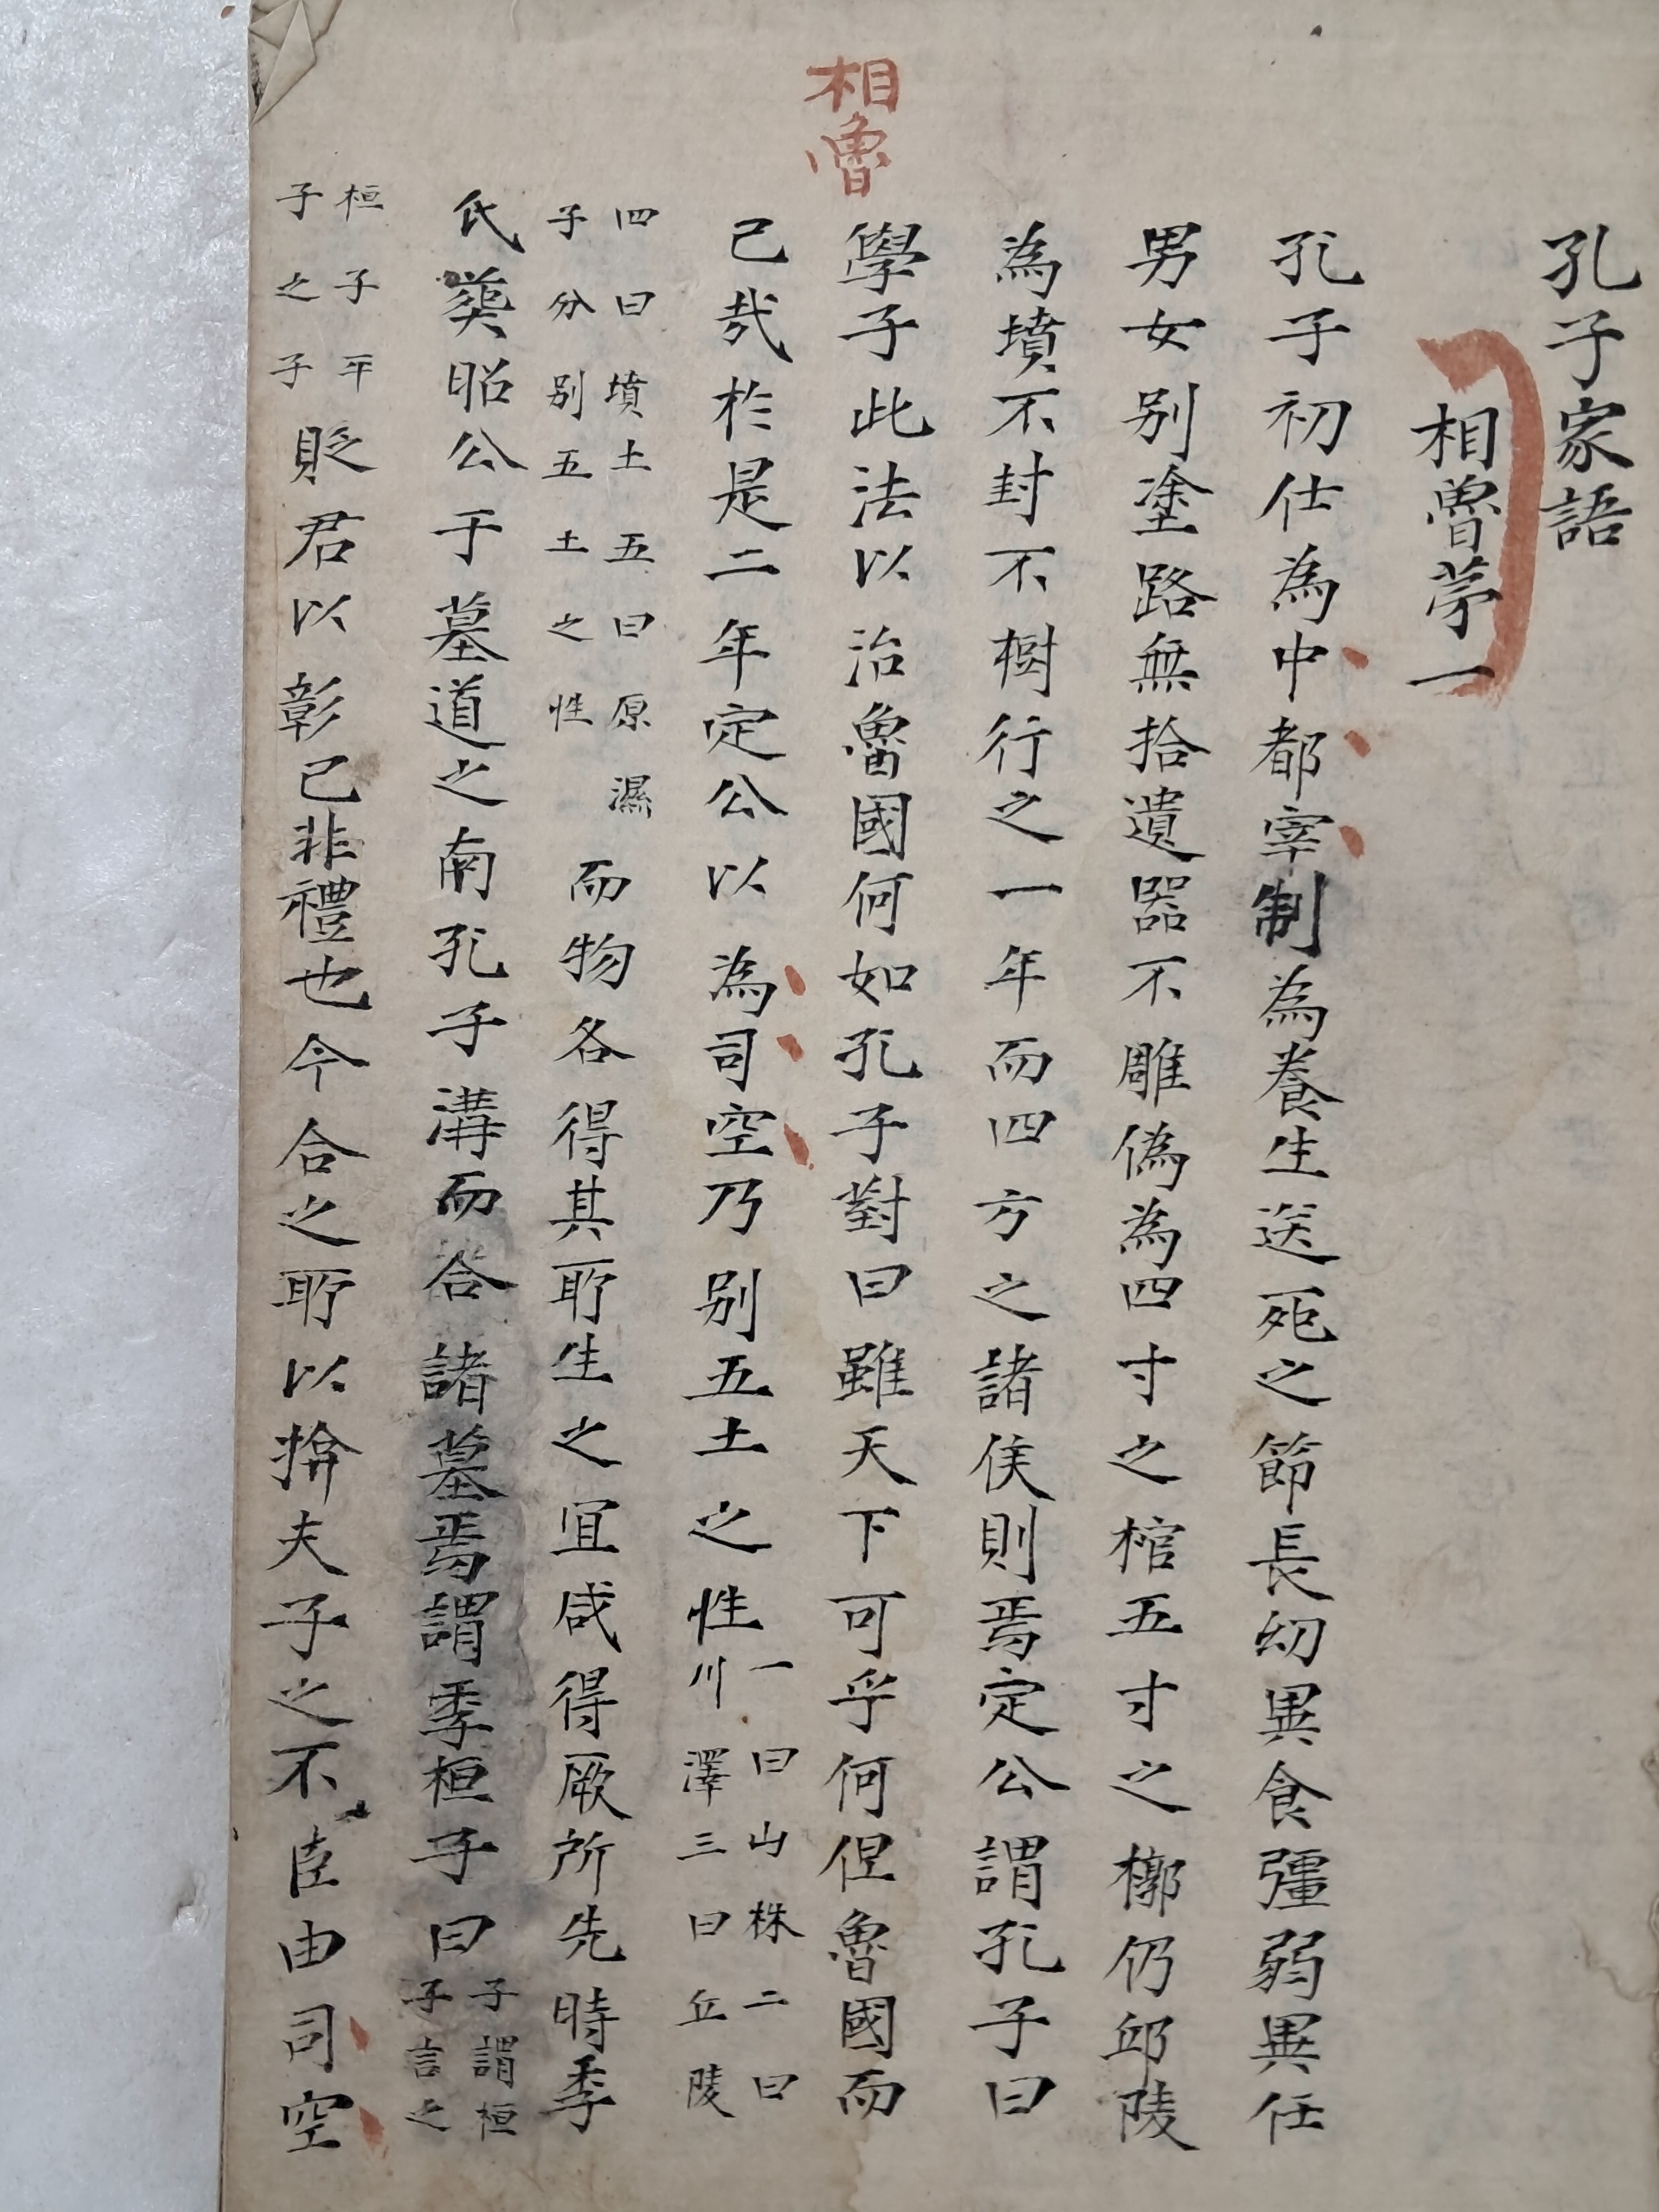 孔子家語
相魯苐一
孔子初仕為中都宰制為養生送死之節長幼異食彊弱異任
男女別塗路無拾遺器不雕偽為四寸之棺五寸之槨仍邱陵
為墳不封不樹行之一年而四方之諸侯則焉定公謂孔子曰
相魯
學子此法以治魯國何如孔子對曰雖天下可乎何但魯國而
已哉於是二年定公以為司空乃别五土之性一曰山株二曰
川澤三曰丘陵
四曰墳土五曰原濕
子分别五土之性
而物各得其所生之宜咸得厥所先時季
氏葬昭公于墓道之南孔子溝而合諸墓焉謂季桓子曰子謂桓
子言之
桓子平
子之子
貶君以彰己非禮也今合之所以揜夫子之不臣由司空